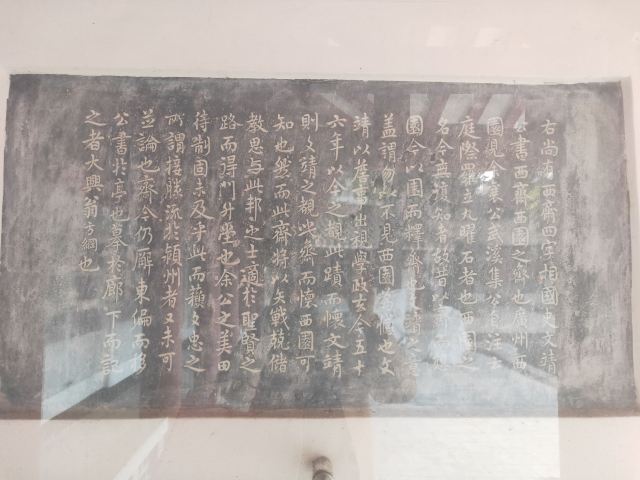 右尚友西齋四字相國史文靖
公書西齋西園之齋也廣州西
園視余襄公武溪集公自注云
庭際羅立九曜石者也西園之
名今無復知者故昔以
園今以園而釋齋也文靖之意
蓋謂勿以不見西園為憾也文
靖以舊書出視學政去今五十
六年以今之覩此蹟而懷文靖
則文靖之覩此齋而懷西園可
知也然而此齋將以矢戰兢儲
教思与此邦之士適於聖賢之
路而得門升堂也余公之美田
待制固未及乎此而蘇文忠之
所謂接勝流於潁州者又未可
並論也齋今仍廨東偏而移
公書於亭也摹於廊下而記
之者大興翁方綱也